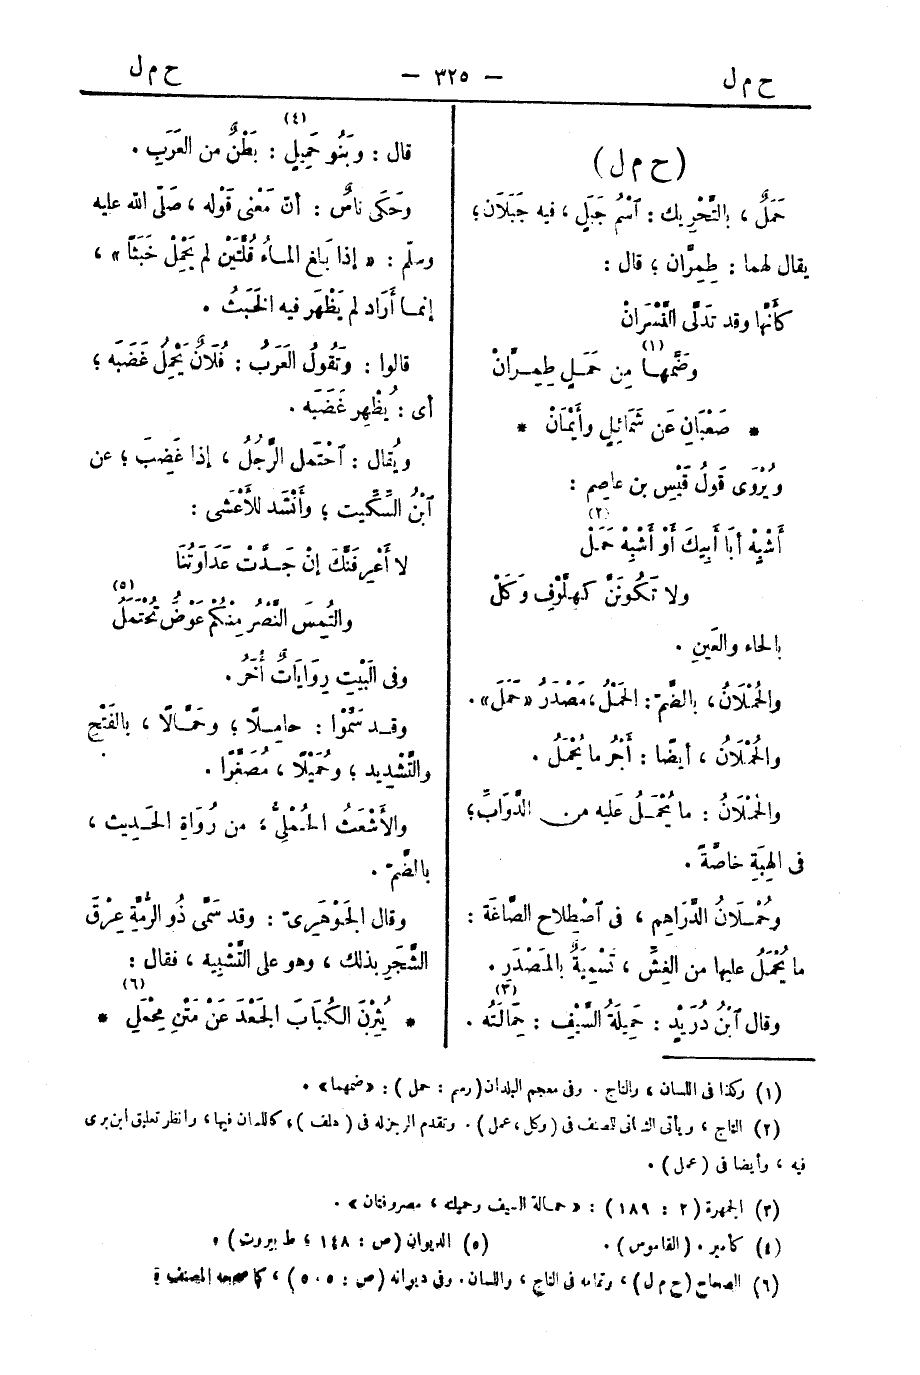 ح م ل
— ٣٢٥ —
ح م ل
(ح م ل)
حَمَلٌ ، بالتَّحْرِيك : ٱسْمُ جَبَلٍ ، فيه جَبَلَان ؛
يقال لهما : طِمِرَّان ؛ قال :
كأَنَّها وقد تَدَلَّى النَّسْرَانْ
وضَمَّهـا (١) مِن حَمَـلٍ طِمِـرَّانْ
* صَعْبَانِ عَن شَمَائِلٍ وأَيْمَانْ *
ويُرْوَى قَولُ قَيْسِ بن عاصِم :
أَشْبِهْ أبَا أَبِيكَ أَوْ أَشْبِهْ حَمَلْ (٢)
ولا تَكُونَنَّ كَهِلَّوْفٍ وَكَلْ
بالحاء والعَينِ .
والحُمْلَانُ ، بالضَّمّ : الحَمْلُ ، مَصْدَرُ «حَمَلَ» .
والحُمْلَانُ ، أيضًا : أَجْرُ ما يُحْمَلُ .
والحُمْلَانُ : ما يُحْمَـلُ عَليه من الدَّوَابِّ ؛
فى الهِبَةِ خاصَّةً .
وحُمْـلَانُ الدَّرَاهِمِ ، فى ٱصْطِلاح الصَّاغَة :
ما يُحْمَلُ عليها من الغِشِّ ، تَسْمِيَةً بالمَصْدَرِ .
وقال ٱبْنُ دُرَيْدٍ : حَمِيلَةُ السَّيْفِ : حِمَالَتُه (٣) .
قال : وبَنُو حَمِيلٍ (٤) : بَطْنٌ من العَرَبِ .
وحَكَى ناسٌ : أنّ مَعْنى قَوْله ، صَلّى الله عليه
وسلّم : « إذا بَلَغ المـاءُ قُلَّتَيْن لم يَحْمِلْ خَبَثًا » ،
إنمـا أَرَاد لم يَظْهَر فيه الخَبَثُ .
قالوا : وتَقُولُ العَرَبُ : فُلَانٌ يَحْمِلُ غَضَبَه ؛
أى : يُظْهِر غَضَبَه .
ويُقال : ٱحْتَمل الرَّجُلُ ، إذا غَضِبَ ؛ عن
ٱبْنُ السِّكِّيت ؛ وأَنْشَد للأَعْشَى :
لا أَعْرِفَنَّكَ إنْ جَـدَّتْ عَدَاوَتُنَا
والتُمِسَ النَّصْرُ مِنْكُمْ عَوْضُ تُحْتَمَلُ (٥)
وفى البَيْتِ رِوَايَاتٌ أُخَرُ .
وقـد سَمَّوْا : حامِـلًا ؛ وحَمَّـالًا ، بالفَتْحِ
والتَّشْدِيد ؛ وحُمَيْلًا ، مُصَغَّرًا .
والأَشْعَثُ الحُمْلِىُّ ، من رُوَاةِ الحَـدِيث ،
بالضَّمّ .
وقال الجَوْهَرِىّ : وقد سَمَّى ذُو الرُّمَّةِ عِرْقَ
الشَّجَرِ بذلك ، وهو على التَّشْبِيه ، فقال :
* يُثِرْنَ الكُبَابَ الجَعْدَ عَنْ مَتْنِ مِحْمَلِ (٦) *
(١) وكذا فى اللسان ، والتاج . وفى معجم البلدان (رسم : حمل) : «ضمهما» .
(٢) التاج ، ويأتى الثانى للصنف فى (وكل ، عمل) . وتقدم الرجزله فى (هلف) ، كاللسان فيها ، وانظر تعليق ابن برى
فيه ، وأيضا فى (عمل) .
(٣) الجمهرة (٢ : ١٨٩) : « حمـالة السيف وحميلته ، معروفتان » .
(٤) كأمير . (القاموس) . (٥) الديوان (ص : ١٤٨ ؛ ط بيروت) .
(٦) الصحاح (ح م ل) ، وتمامه فى التاج ، واللسان . وفى ديوانه (ص : ٥٠٥) ، كما صححه المصنف :